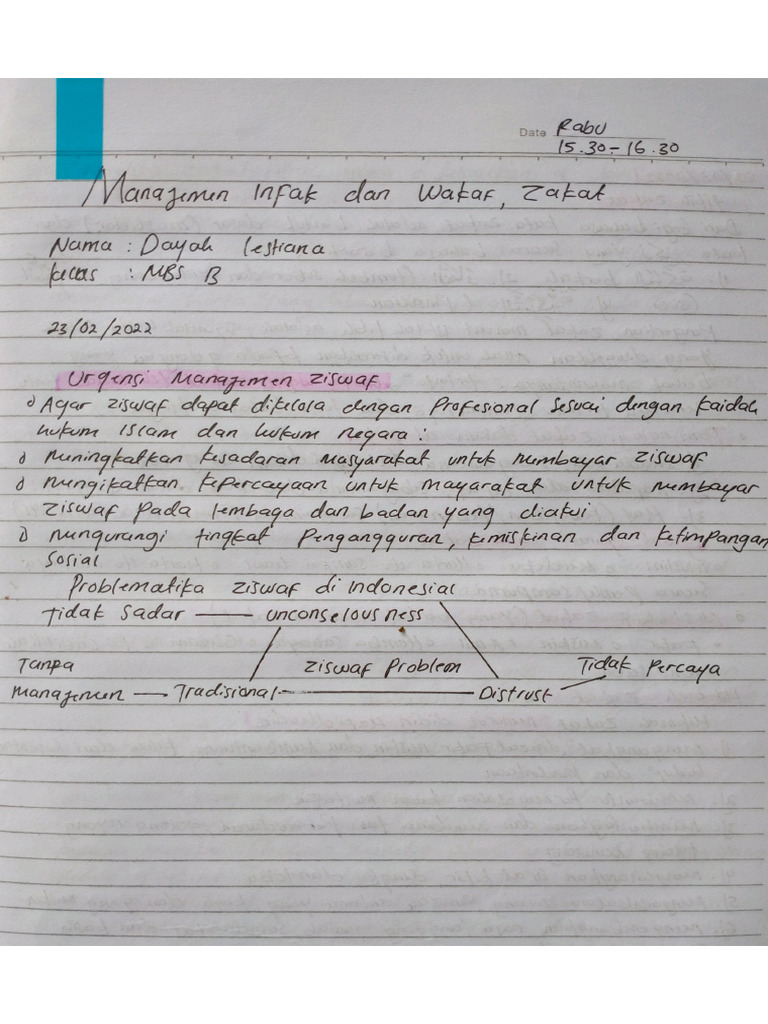 Date Rabu
15.30 - 16.30
Manajemen Infak dan Wakaf, Zakat
Nama : Dayah Lestiana
Kelas : MBS B
23/02/2022
Urgensi Manajemen Ziswaf
Agar Ziswaf dapat dikelola dengan Profesional sesuai dengan kaidah
hukum Islam dan hukum negara :
meningkatkan kesadaran masyarakat untuk membayar Ziswaf
mengikatkan kepercayaan untuk mayarakat untuk membayar
Ziswaf pada lembaga dan badan yang diakui
mengurangi tingkat Pengangguran, kemiskinan dan ketimpangan
sosial
Problematika Ziswaf di Indonesial
Tidak sadar — unconselousness
Tanpa Ziswaf Problem Tidak Percaya
manajemen — Tradisional — Distrust